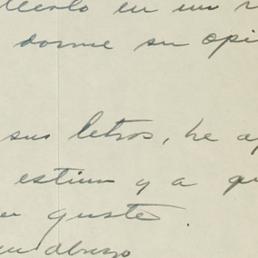 en un
darme su opi
sus letras, he a
estim y a qu
guste.
un abrazo